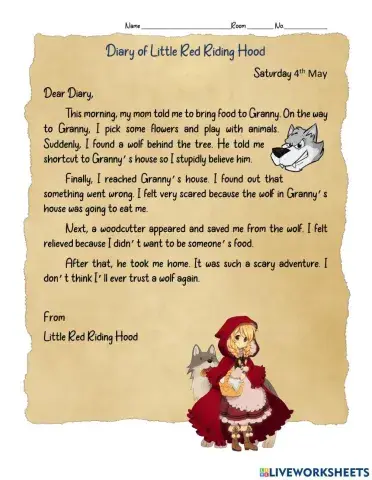 Name____________________Room________No.__________
Diary of Little Red Riding Hood
Saturday 4th May
Dear Diary,
This morning, my mom told me to bring food to Granny. On the way
to Granny, I pick some flowers and play with animals.
Suddenly, I found a wolf behind the tree. He told me
shortcut to Granny's house so I stupidly believe him.
Finally, I reached Granny's house. I found out that
something went wrong. I felt very scared because the wolf in Granny's
house was going to eat me.
Next, a woodcutter appeared and saved me from the wolf. I felt
relieved because I didn't want to be someone's food.
After that, he took me home. It was such a scary adventure. I
don't think I'll ever trust a wolf again.
From
Little Red Riding Hood
LIVEWORKSHEETS